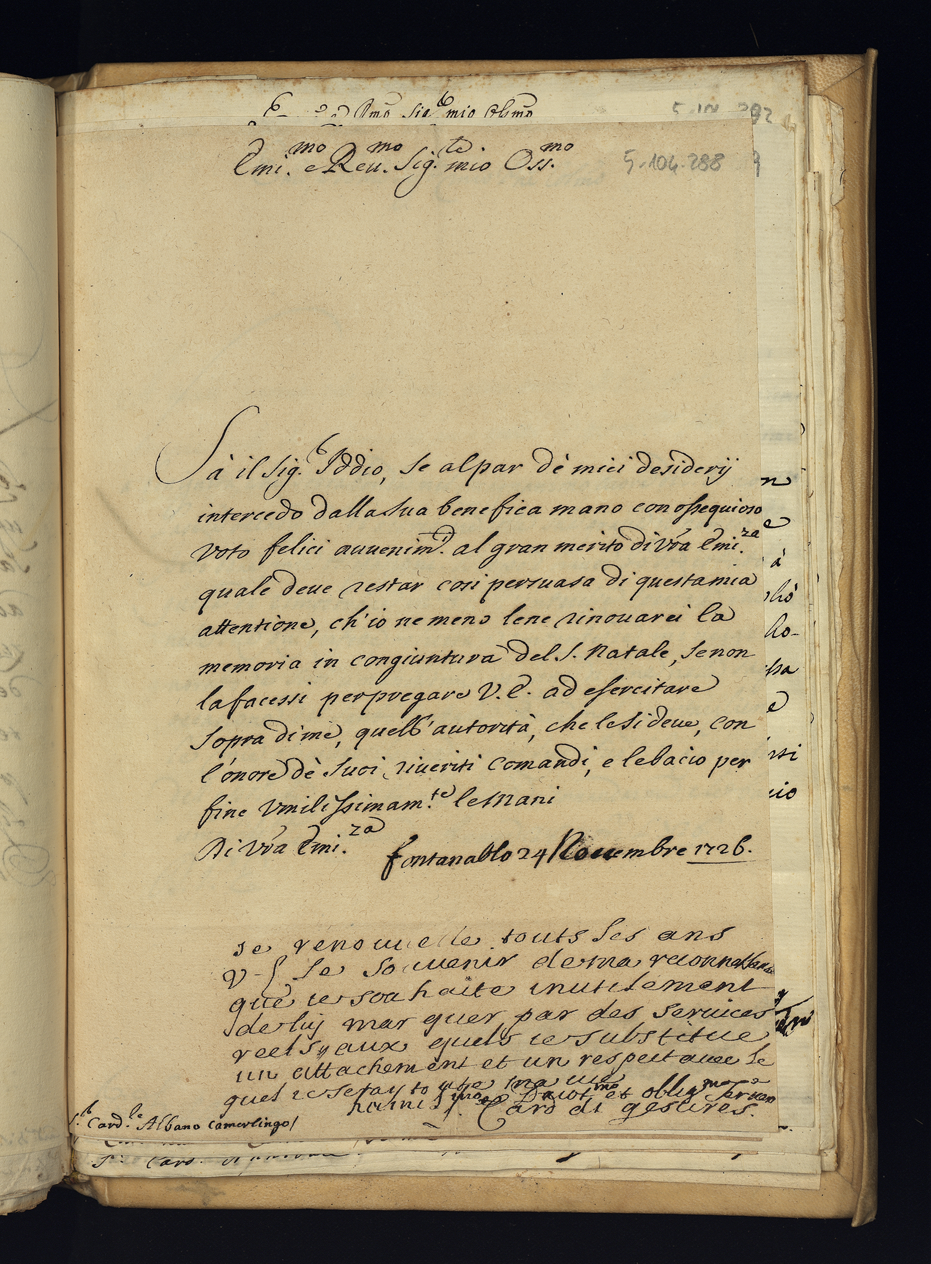 Sig.re mio Oss.mo
5-104-292
Emi.mo e Reu.mo Sig.re mio Oss.mo
5-104-288
Sà il Sig.r Iddio, se al par dè miei desiderij
intercedo dalla sua benefica mano con ossequioso
voto felici auuenim.ti al gran merito di Vra Emi.za
quale deve restar cosi persuasa di questa mia
attentione, ch'io ne meno lene rinouarei la
memoria in congiuntura del S. Natale, se non
la facessi per pregare V. E. ad esercitare
sopra di me, quell'autorità, che le si deue, con
l'onore dè suoi riueriti comandi, e le bacio per
fine Vmilissimam.te le Mani
Di Vra Emi.za
fontanablo 24 Nouembre 1726.
je renouuelle touts les ans
V-E le souuenir de ma reconnessance
que ie souhaite inutilement
de luj marquer par des seruices
reels, aux quels ie substitue
un attachement et un respect auec le
quel ie seray toute ma uie
humil.mo Deuot.mo et oblig.mo Seruer
Card di gesures.
S.r Card.le Albano Camerlingo/